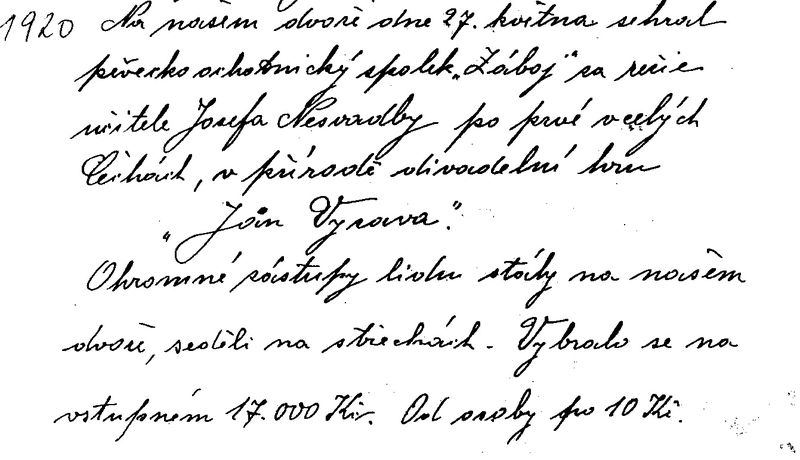 1920 Na našem dvoře dne 27. května sehrál
pěvecko ochotnický spolek „Záboj" za režie
učitele Josefa Nesvadby po prvé v celých
Čechách, v přírodě divadelní hru
„Jan Výrava".
Ohromné zástupy lidu stály na našem
dvoře, seděli na střechách. Vybralo se na
vstupném 17.000 Kč. Od osoby po 10 Kč.